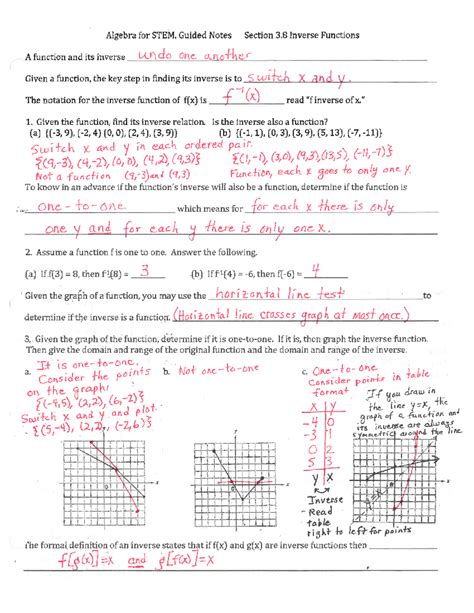 Algebra for STEM, Guided Notes Section 3.8 Inverse Functions
A function and its inverse undo one another
Given a function, the key step in finding its inverse is to switch x and y.
The notation for the inverse function of f(x) is f⁻¹(x) read "f inverse of x."
1. Given the function, find its inverse relation. Is the inverse also a function?
(a) {(-3, 9), (-2, 4) (0, 0), (2, 4), (3, 9)} (b) {(-1, 1), (0, 3), (3, 9), (5, 13), (-7, -11)}
Switch x and y in each ordered pair.
{(9,-3), (4,-2), (0,0), (4,2), (9,3)} {(1,-1), (3,0), (9,3), (13,5), (-11,-7)}
Not a function (9,-3) and (9,3) Function, each x goes to only one y.
To know in advance if the function's inverse will also be a function, determine if the function is
one-to-one which means for each x there is only
one y and for each y there is only one x.
2. Assume a function f is one to one. Answer the following.
(a) If f(3) = 8, then f⁻¹(8) = 3 (b) If f⁻¹(4) = -6, then f(-6) = 4
Given the graph of a function, you may use the horizontal line test to
determine if the inverse is a function. (Horizontal line crosses graph at most once.)
3. Given the graph of the function, determine if it is one-to-one. If it is, then graph the inverse function.
Then give the domain and range of the original function and the domain and range of the inverse.
a. It is one-to-one.
Consider the points
on the graph:
{(-4,5), (2,2), (6,-2)}
Switch x and y and plot.
{(5,-4), (2,2), (-2,6)}
b. Not one-to-one
c. One-to-one
Consider points in table
format
x y
-4 0
-3 1
0 2
5 3
y x
Inverse
- Read
table
right to left for points
If you draw in
the line y=x, the
graph of a function and
its inverse are always
symmetric around the line
y=x
The formal definition of an inverse states that if f(x) and g(x) are inverse functions then
f[g(x)]=x and g[f(x)]=x